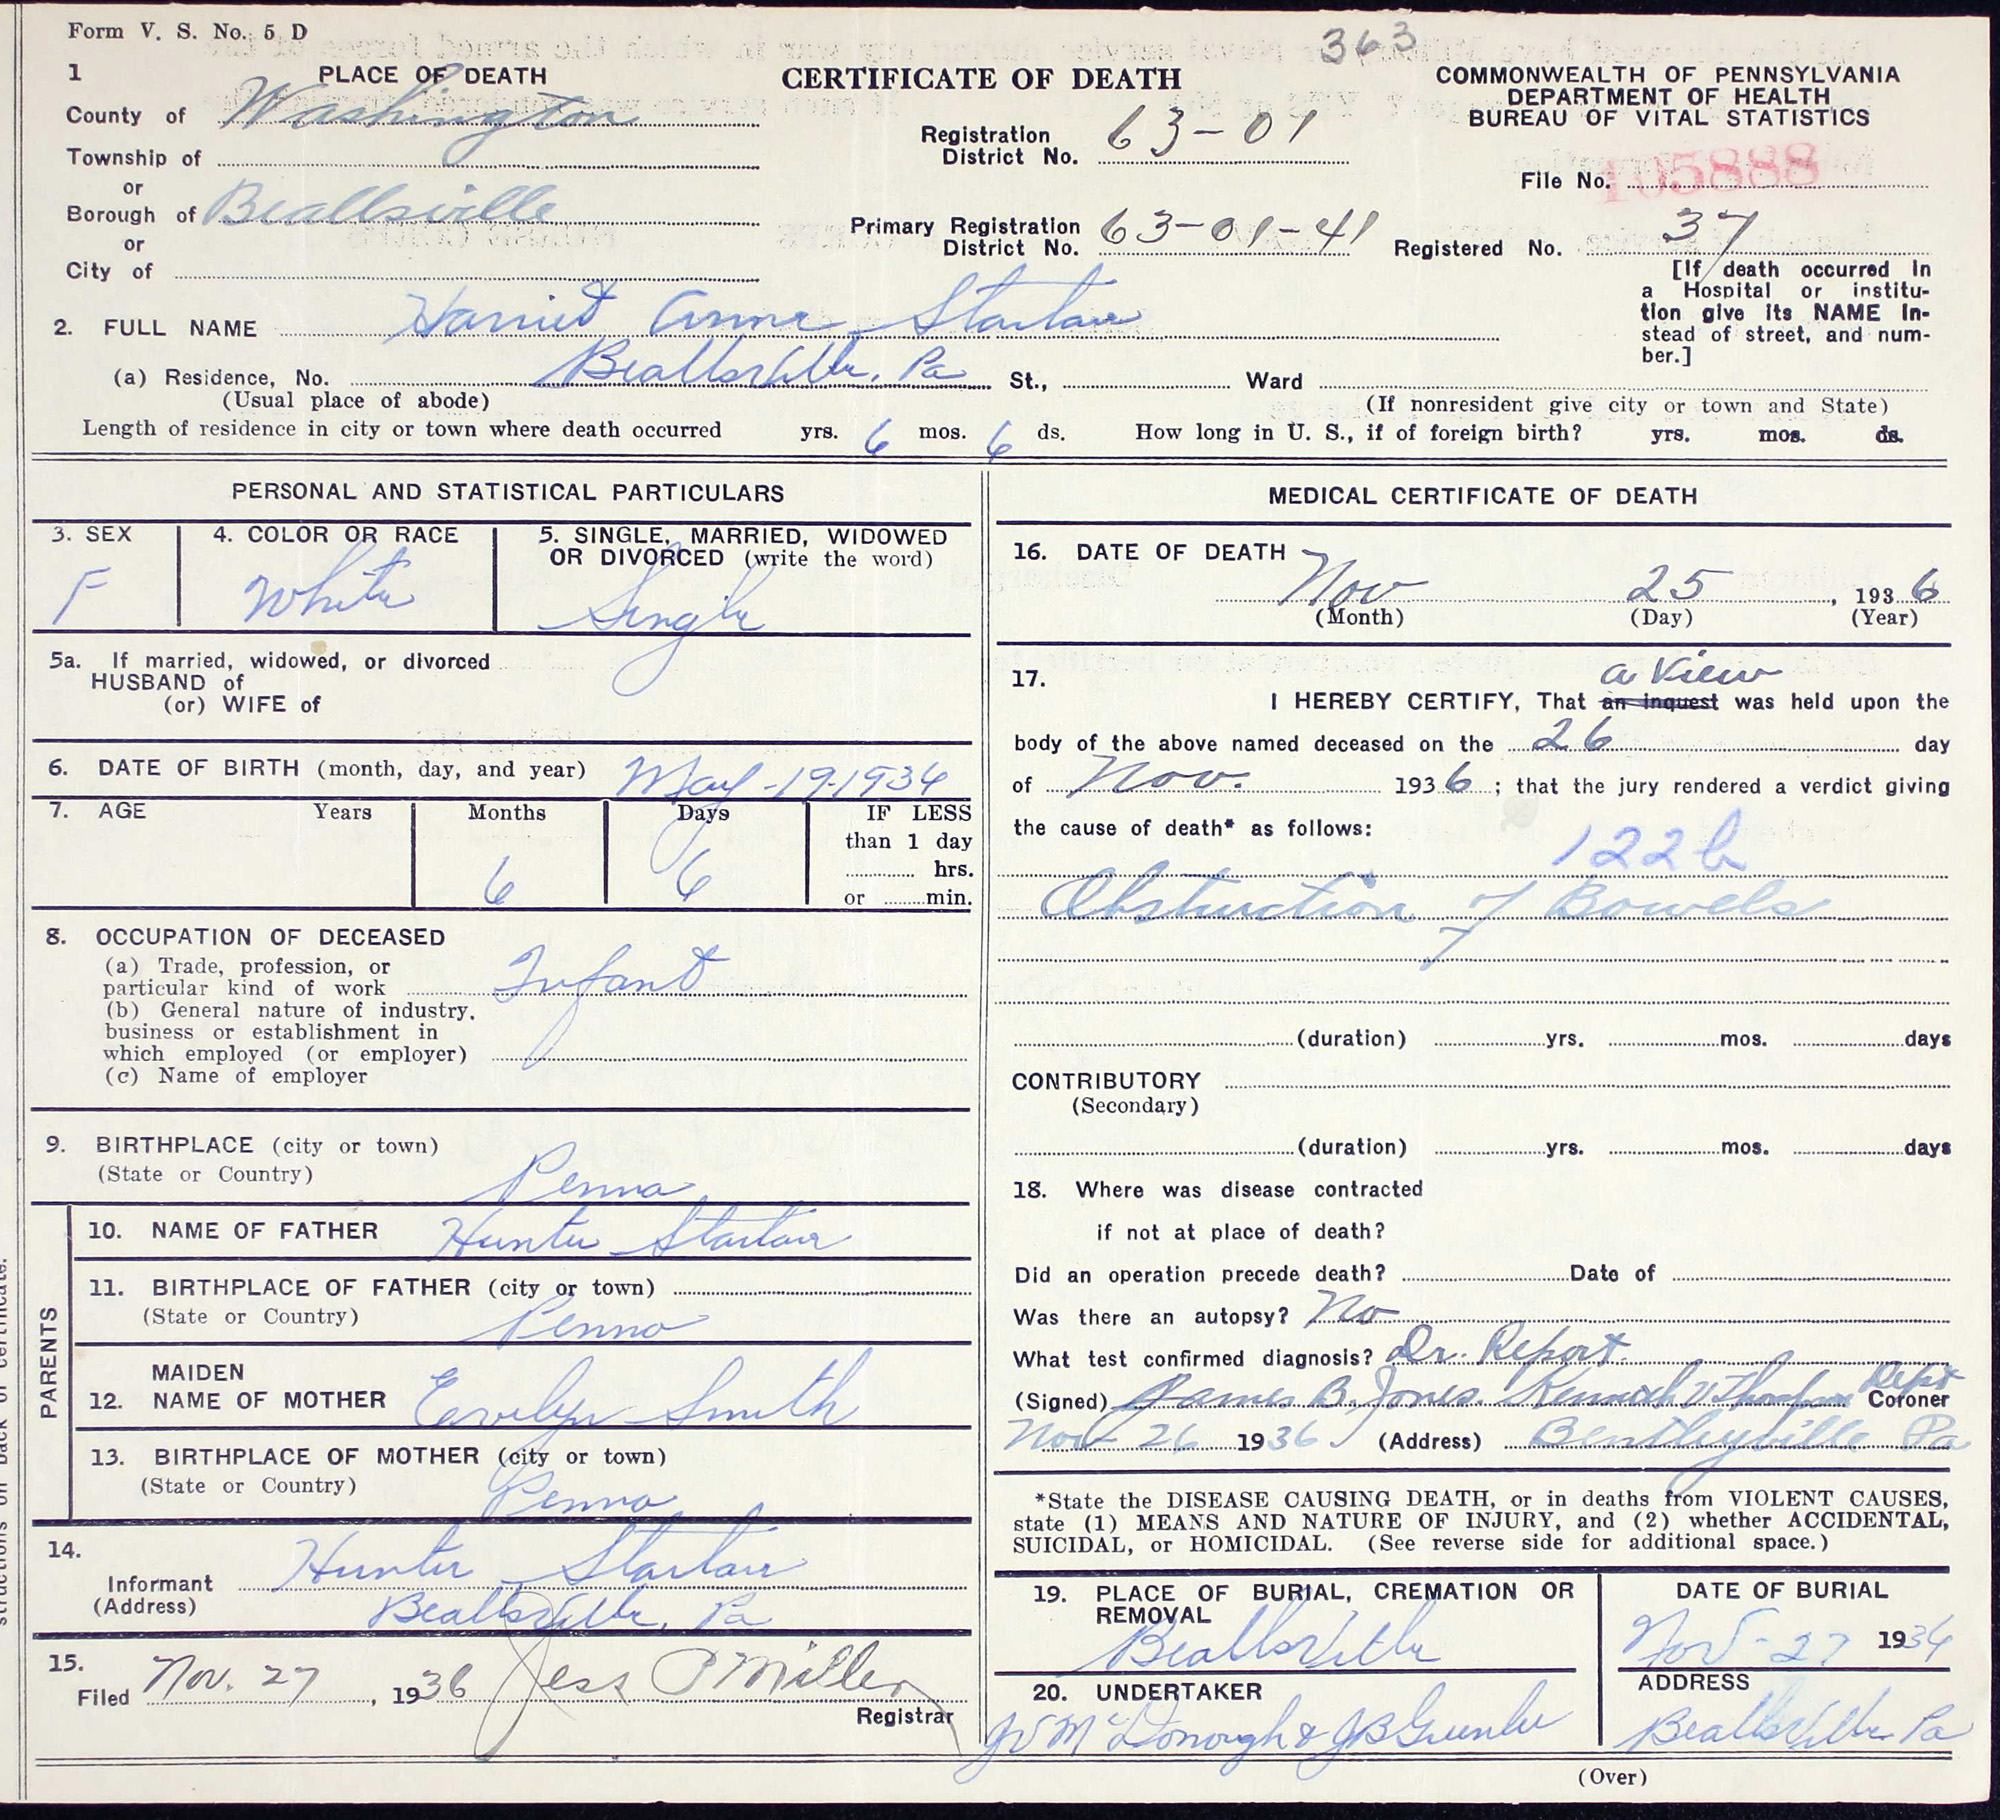 Form V. S. No. 5 D
363
1 PLACE OF DEATH
County of Washington
Township of
or
Borough of Beallsville
or
City of
CERTIFICATE OF DEATH
Registration District No. 63-01
Primary Registration District No. 63-01-41
COMMONWEALTH OF PENNSYLVANIA
DEPARTMENT OF HEALTH
BUREAU OF VITAL STATISTICS
File No. 105888
Registered No. 37
[If death occurred in
a Hospital or institu-
tion give its NAME in-
stead of street, and num-
ber.]
2. FULL NAME Harriet Anne
(a) Residence, No. Beallsville, Pa St., Ward
(Usual place of abode) (If nonresident give city or town and State)
Length of residence in city or town where death occurred yrs. 6 mos. 6 ds. How long in U. S., if of foreign birth? yrs. mos. ds.
PERSONAL AND STATISTICAL PARTICULARS
3. SEX
F
4. COLOR OR RACE
White
5. SINGLE, MARRIED, WIDOWED
OR DIVORCED (write the word)
Single
5a. If married, widowed, or divorced
HUSBAND of
(or) WIFE of
6. DATE OF BIRTH (month, day, and year) May-19-1936
7. AGE Years Months Days IF LESS
than 1 day
hrs.
6 6 or min.
8. OCCUPATION OF DECEASED
(a) Trade, profession, or
particular kind of work Infant
(b) General nature of industry,
business or establishment in
which employed (or employer)
(c) Name of employer
9. BIRTHPLACE (city or town)
(State or Country) Penna
PARENTS
10. NAME OF FATHER Hunter
11. BIRTHPLACE OF FATHER (city or town)
(State or Country) Penna
MAIDEN
12. NAME OF MOTHER Evelyn Smith
13. BIRTHPLACE OF MOTHER (city or town)
(State or Country) Penna
14.
Informant Hunter
(Address) Beallsville, Pa
15.
Filed Nov. 27, 1936 Jess P Miller
Registrar
MEDICAL CERTIFICATE OF DEATH
16. DATE OF DEATH
Nov 25, 1936
(Month) (Day) (Year)
17. a View
I HEREBY CERTIFY, That an inquest was held upon the
body of the above named deceased on the 26 day
of Nov. 1936; that the jury rendered a verdict giving
the cause of death* as follows:
122b
Obstruction of Bowels
(duration) yrs. mos. days
CONTRIBUTORY
(Secondary)
(duration) yrs. mos. days
18. Where was disease contracted
if not at place of death?
Did an operation precede death? Date of
Was there an autopsy? No
What test confirmed diagnosis? Dr. Report.
(Signed) James B. Jones. Kenneth V Thompson Dept Coroner
Nov 26 1936 (Address) Bentleyville Pa
*State the DISEASE CAUSING DEATH, or in deaths from VIOLENT CAUSES,
state (1) MEANS AND NATURE OF INJURY, and (2) whether ACCIDENTAL,
SUICIDAL, or HOMICIDAL. (See reverse side for additional space.)
19. PLACE OF BURIAL, CREMATION OR
REMOVAL
Beallsville
DATE OF BURIAL
Nov-27 1936
20. UNDERTAKER
McDonough & JB Greenlee
ADDRESS
Beallsville Pa
(Over)